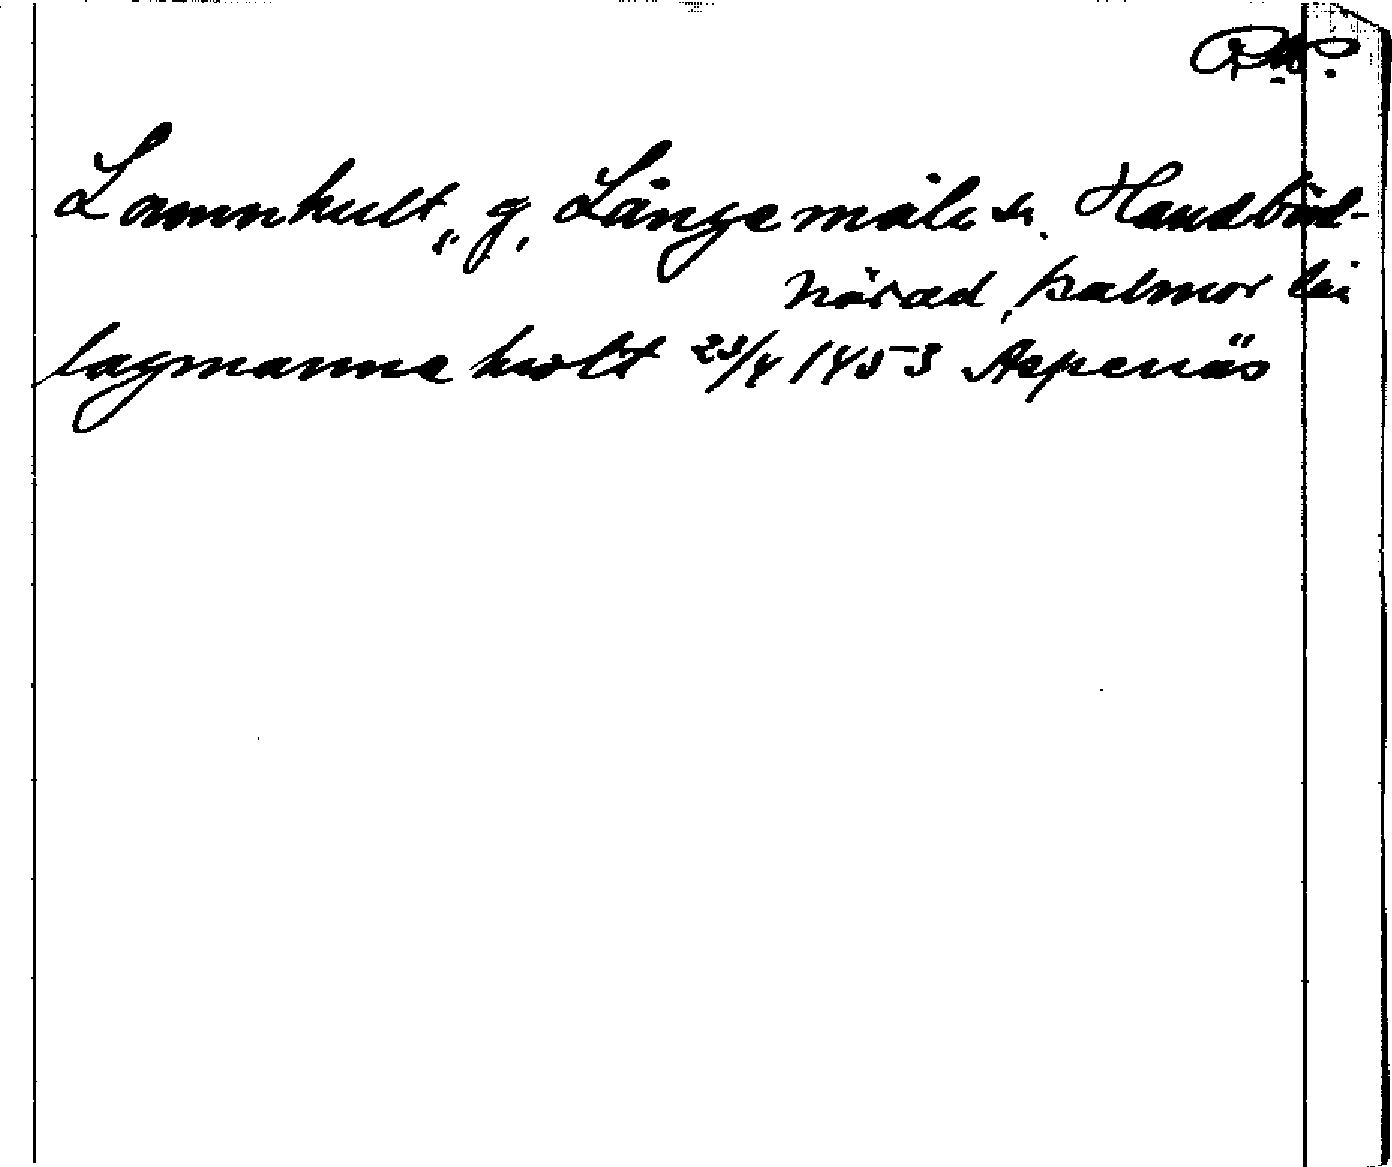 Lammhult, g. Långemåla sn. Handbörd-
härad, Kalmar län
lagmanna hwlt 23/4 1453 Aspenäs